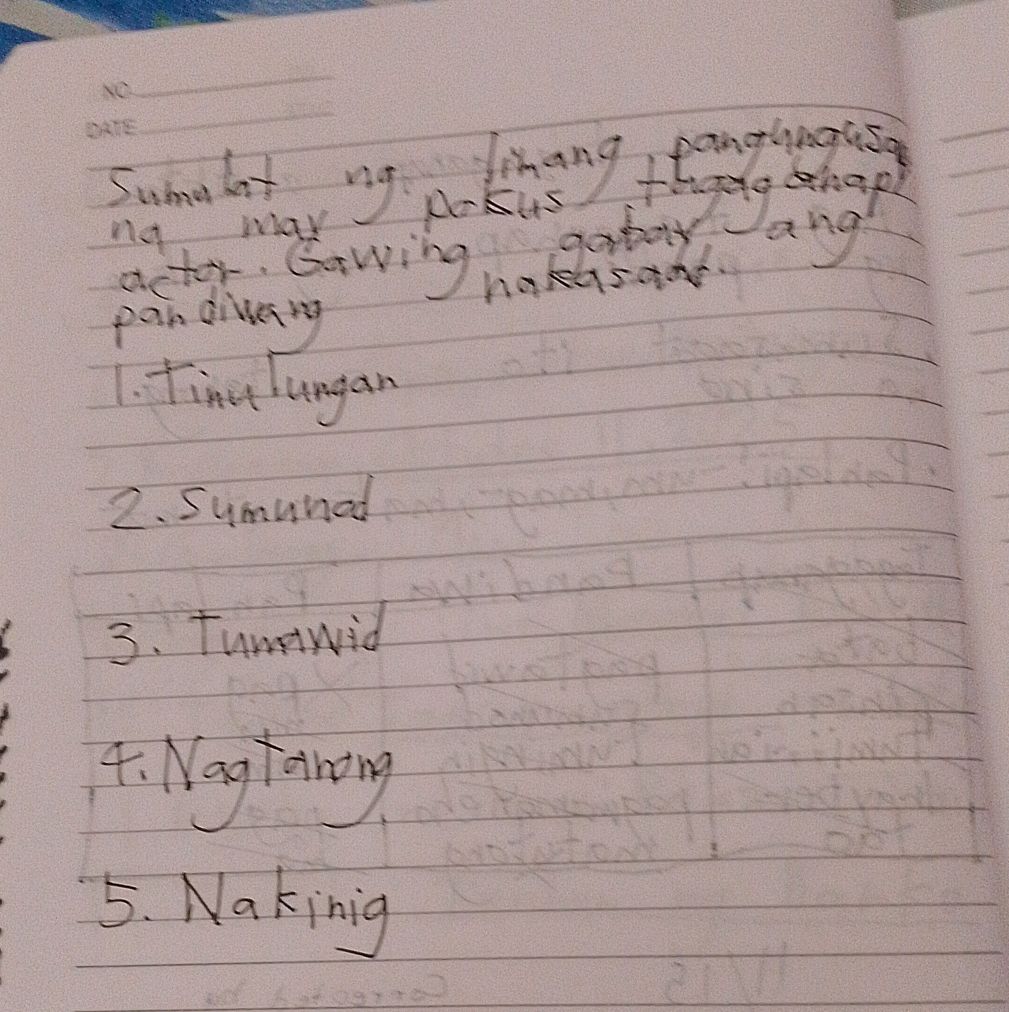 NO
DATE
Sumulat ng limang pangungusap
na may pokus tagaganap/
actor. Gawing gabay ang
pandiwang nakasaad.
1. Tinulungan
2. Sumunod
3. Tumawid
4. Nagtanong
5. Nakinig